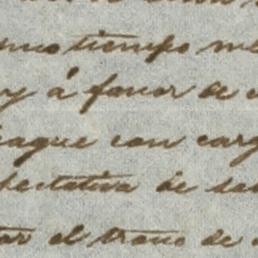 mo tiempo me
y á favor de
ague con carg
pectativa de
ar el trazo de